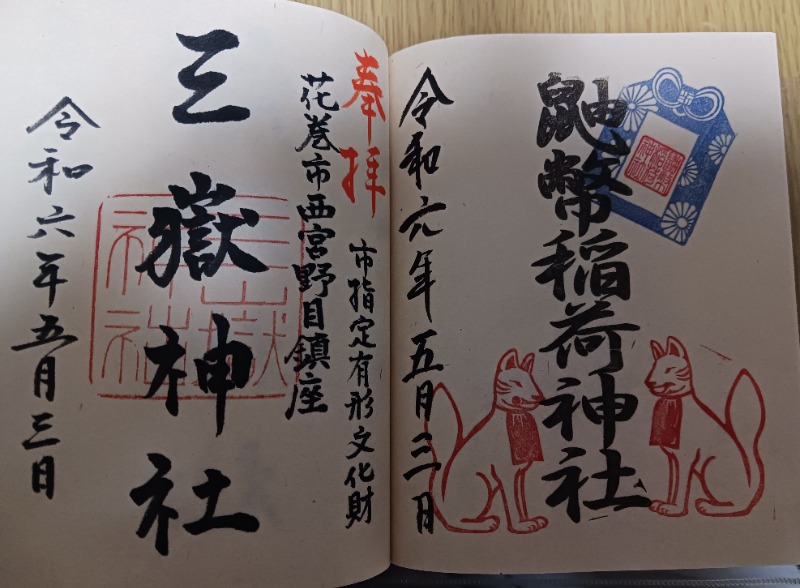 鼬幣稲荷神社
令和六年五月三日
奉拝
市指定有形文化財
花巻市西宮野目鎮座
三嶽神社
三嶽
神社
令和六年五月三日